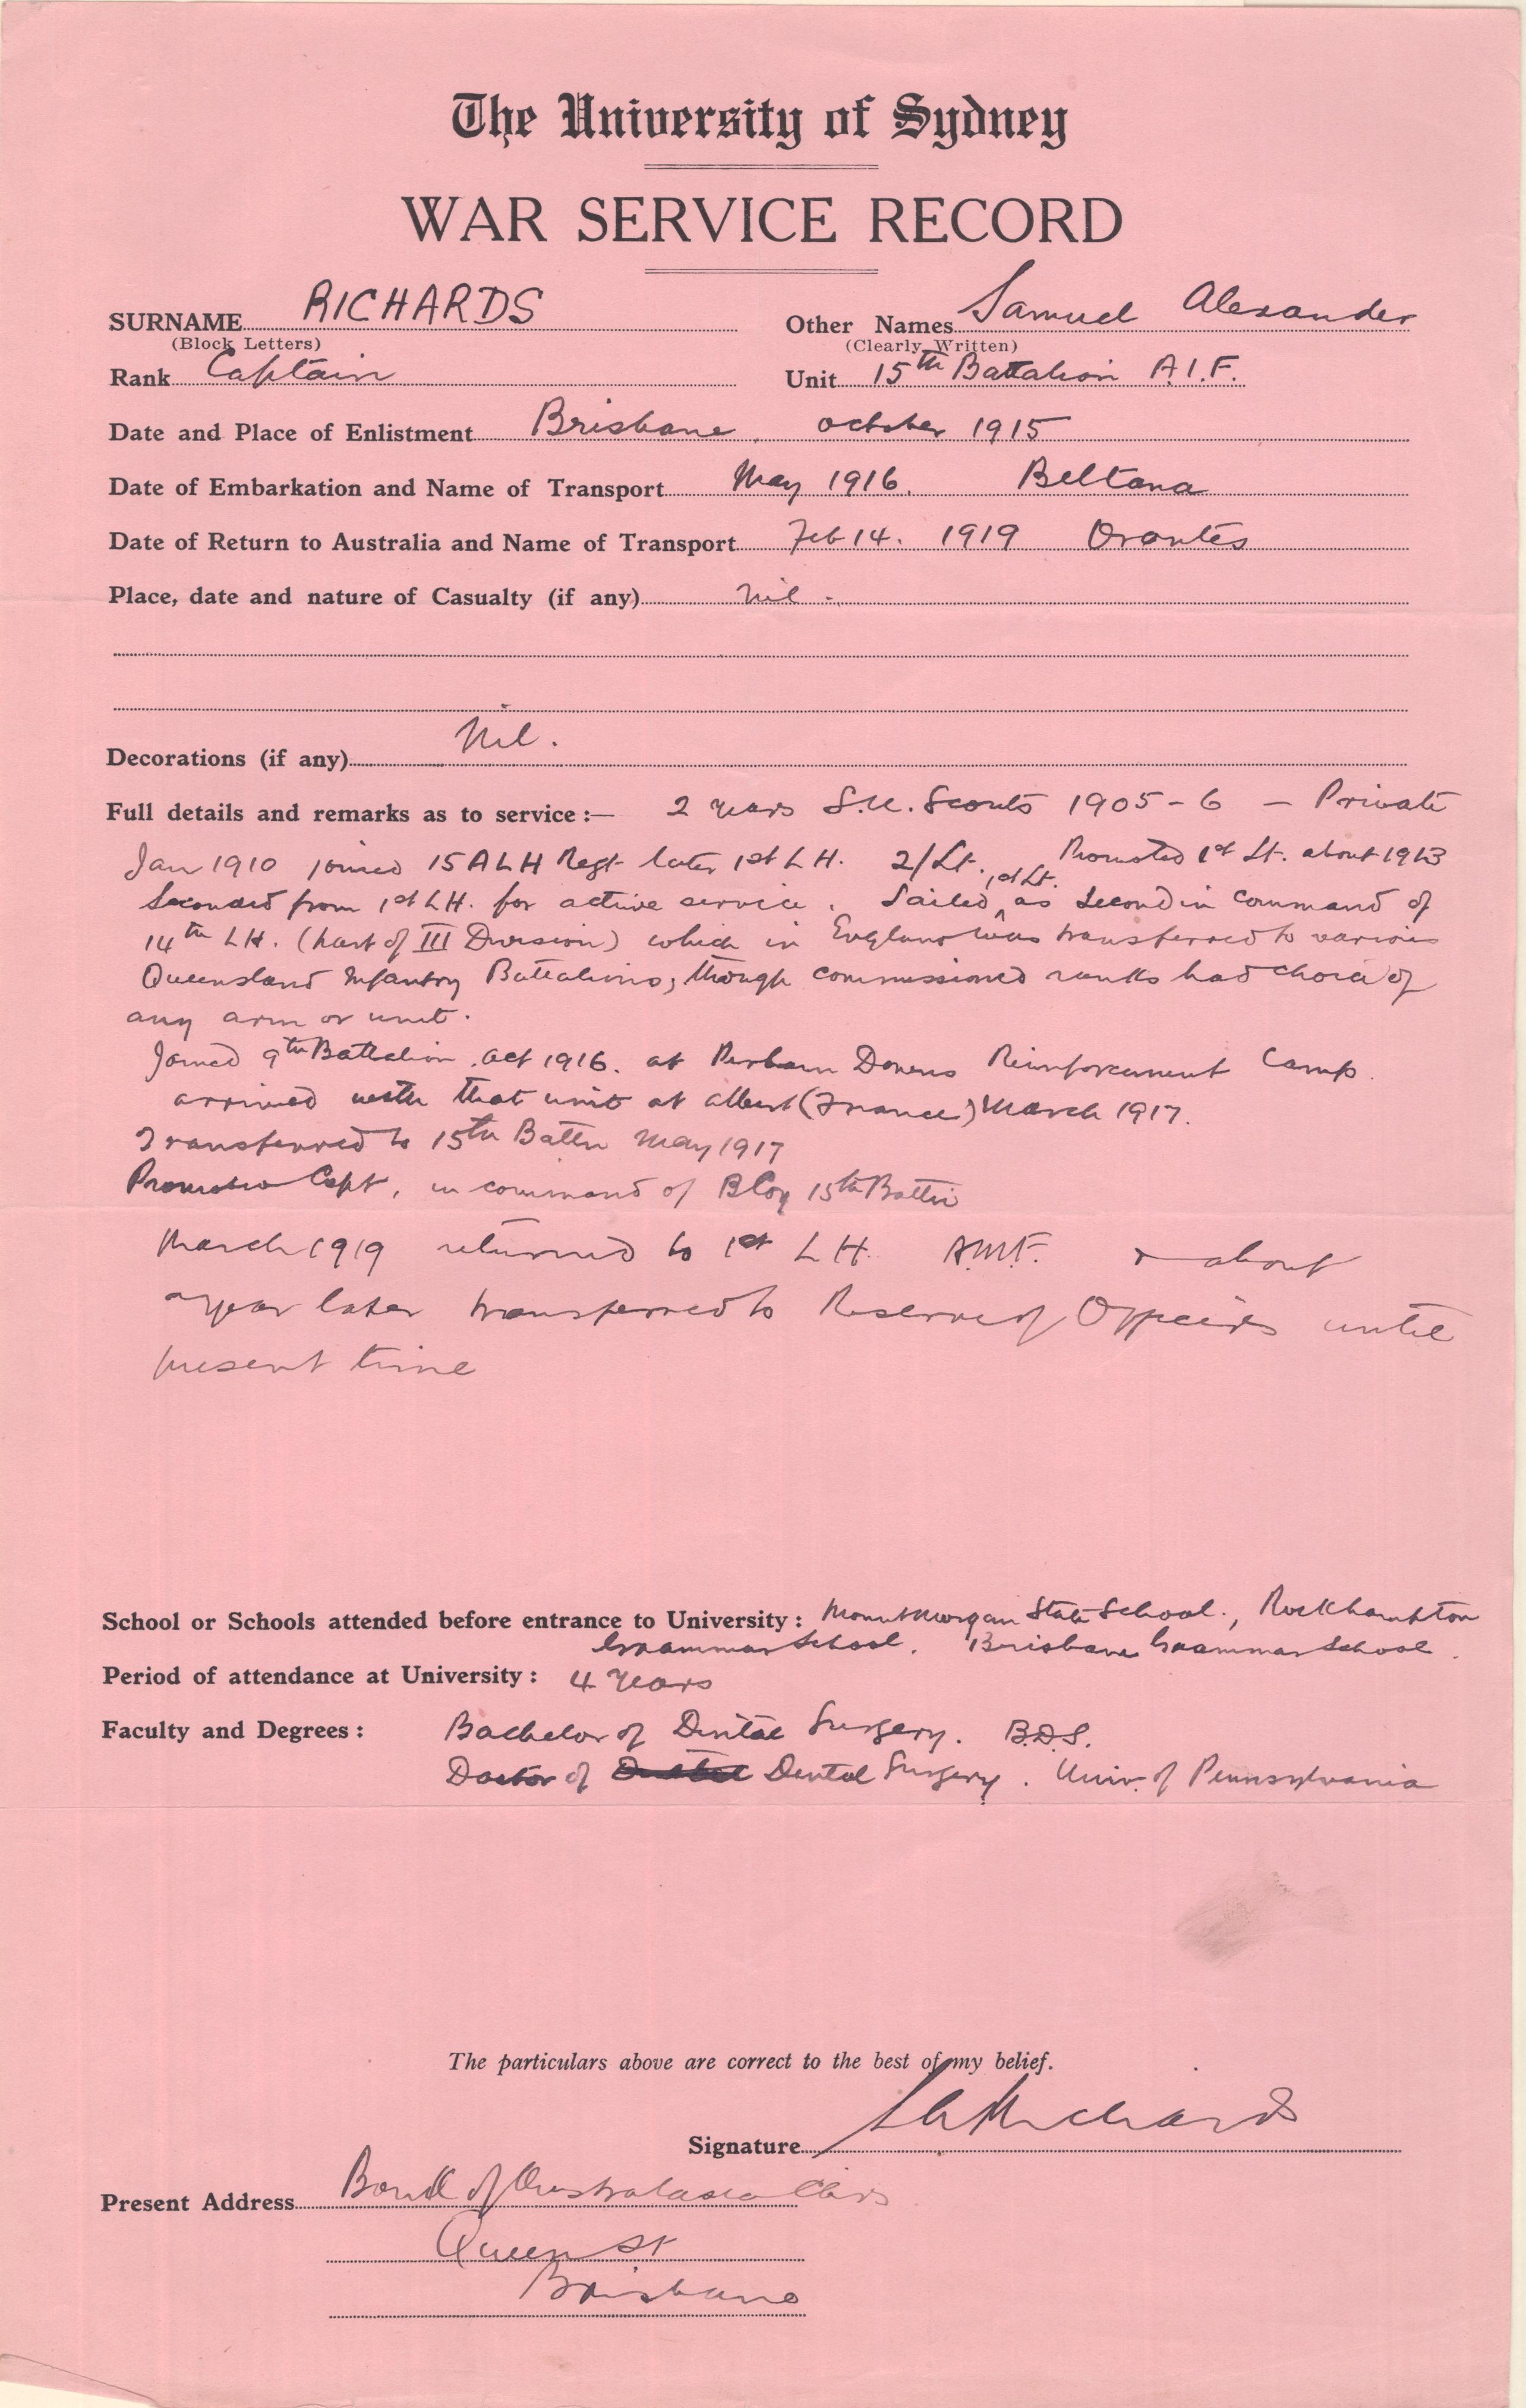 The University of Sydney
WAR SERVICE RECORD
SURNAME RICHARDS Other Names Samuel Alexander
(Block Letters) (Clearly Written)
Rank Captain Unit 15th Battalion A.I.F.
Date and Place of Enlistment Brisbane, October 1915
Date of Embarkation and Name of Transport May 1916. Beltana
Date of Return to Australia and Name of Transport Feb 14. 1919 Orontes
Place, date and nature of Casualty (if any) Nil -
Decorations (if any) Nil.
Full details and remarks as to service :— 2 years S.U. Scouts 1905-6 — Private
Jan 1910 joined 15 A L H Regt later 1st L H. 2/Lt. Promoted 1st Lt. about 1913
1st Lt.
Seconded from 1st L H. for active service. Sailed ^ as Second in Command of
14th L H. (part of III Division) which in England was transferred to various
Queensland Infantry Battalions, though commissioned ranks had choice of
any arm or unit.
Joined 9th Battalion Oct 1916. at Perham Downs Reinforcement Camp.
arrived with that unit at Albert (France) March 1917.
Transferred to 15th Battn May 1917
Promoted Capt, in command of B Coy 15th Battn
March 1919 returned to 1st L H. A.M.F. & about
a year later transferred to Reserve of Officers until
present time
School or Schools attended before entrance to University : Mount Morgan State School., Rockhampton
Grammar School. Brisbane Grammar School.
Period of attendance at University : 4 years
Faculty and Degrees : Bachelor of Dental Surgery. B.D.S.
Doctor of Dental Surgery. Univ. of Pennsylvania
The particulars above are correct to the best of my belief.
Signature S A Richards
Present Address Bank of Australasia Cbrs
Queen St
Brisbane